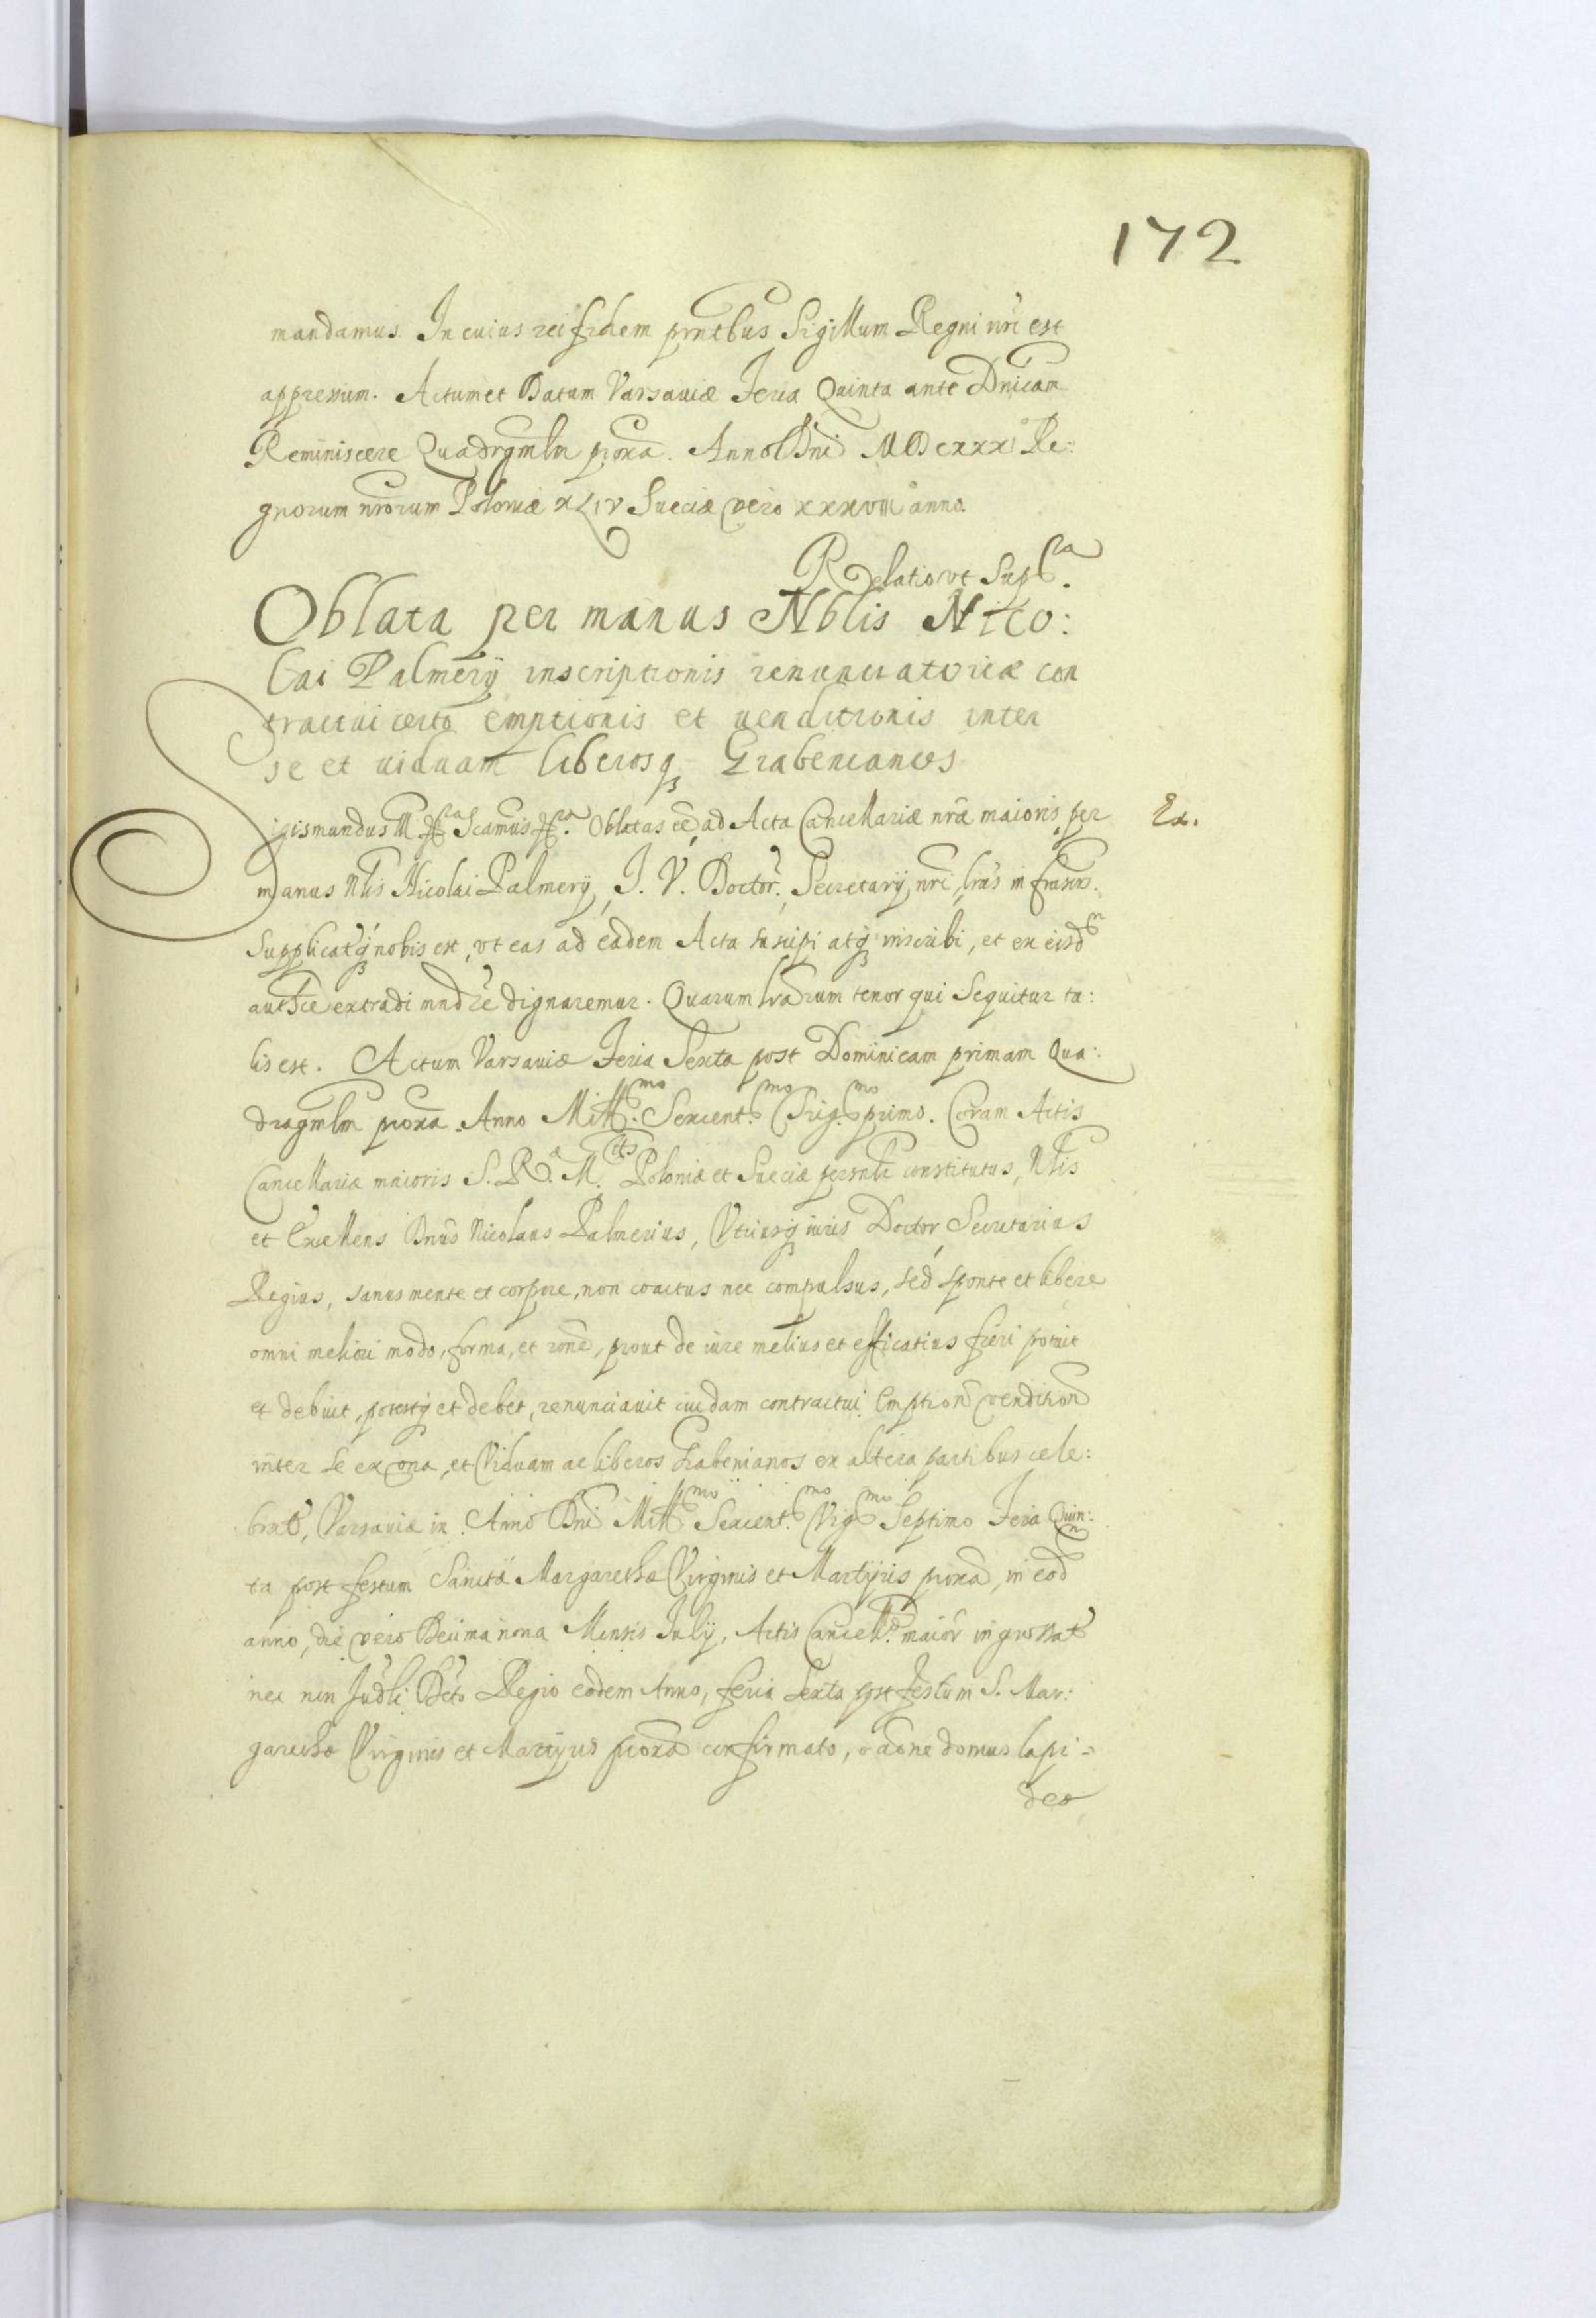 172
mandamus. In cuius rei fidem pr̃ntibus Sigillum Regni nr̃i est
appressum. Actum et Datum Varsaviæ Feria Quinta ante Dnicam
Reminiscere Quadrgm̃lm proxa. Anno Dni MDCXXXI Re:
gnorum nrorum Poloniæ XLIV Sueciæ vero XXXVIII anno.
Relatio ut Supra.
Oblata per manus Nblis Nico:
lai Palmerÿ inscriptionis renunciatoriæ con
tractui certo emptionis et venditionis inter
se et viduam liberosq3 Grabenianos
Sigismundus III ra Scamus ra. Oblatas eẽ, ad Acta Cancellariæ nrã maioris, per
Ex.
manus Nlis Nicolai Palmerÿ, J. V. Doctor., Secretarÿ nrĩ, lrãs infrascr.
Supplicatq3 nobis est, ut eas ad eadem Acta suscipi atq3 inscribi, et ex eisdm
authce extradi mndre dignaremur. Quarum lrarum tenor qui Sequitur ta:
lis est. Actum Varsaviæ Feria Sexta post Dominicam primam Qua:
dragm̃lm proxa. Anno Mill.mo Sexcent.mo Trig.mo primo. Coram Actis
Cancellariæ maioris S. Ra. M.ttis Poloniæ et Sueciæ personlr constitutus, Nlis
et Excellens Dnus Nicolaus Palmerius, Utriusq3 iuris Doctor, Secretarius
Regius, sanus mente et corpore, non coactus nec compulsus, sed sponte et libere
omni meliori modo, forma, et rone, prout de iure melius et efficatius fieri potuit
et debuit, potestq3 et debet, renunciavit cuidam contractui Emption vendition
inter se ex una, et Viduam ac liberos Grabenianos ex altera partibus cele:
brat, Varsaviæ in Anno Dni Mill.mo Sexcent.mo Vig.mo Septimo Feria Quin:
ta post festum Sanctæ Margarethæ Virginis et Martyris proxa, in eodm
anno, die vero Decima nona Mensis Julÿ, Actis Cancell. maior ingrossat
nec non Judli Dcto Regio eodem Anno, feria Sexta post festum S. Mar:
garethæ Virginis et Martyris proxa confirmato, raone domus lapi=
deæ